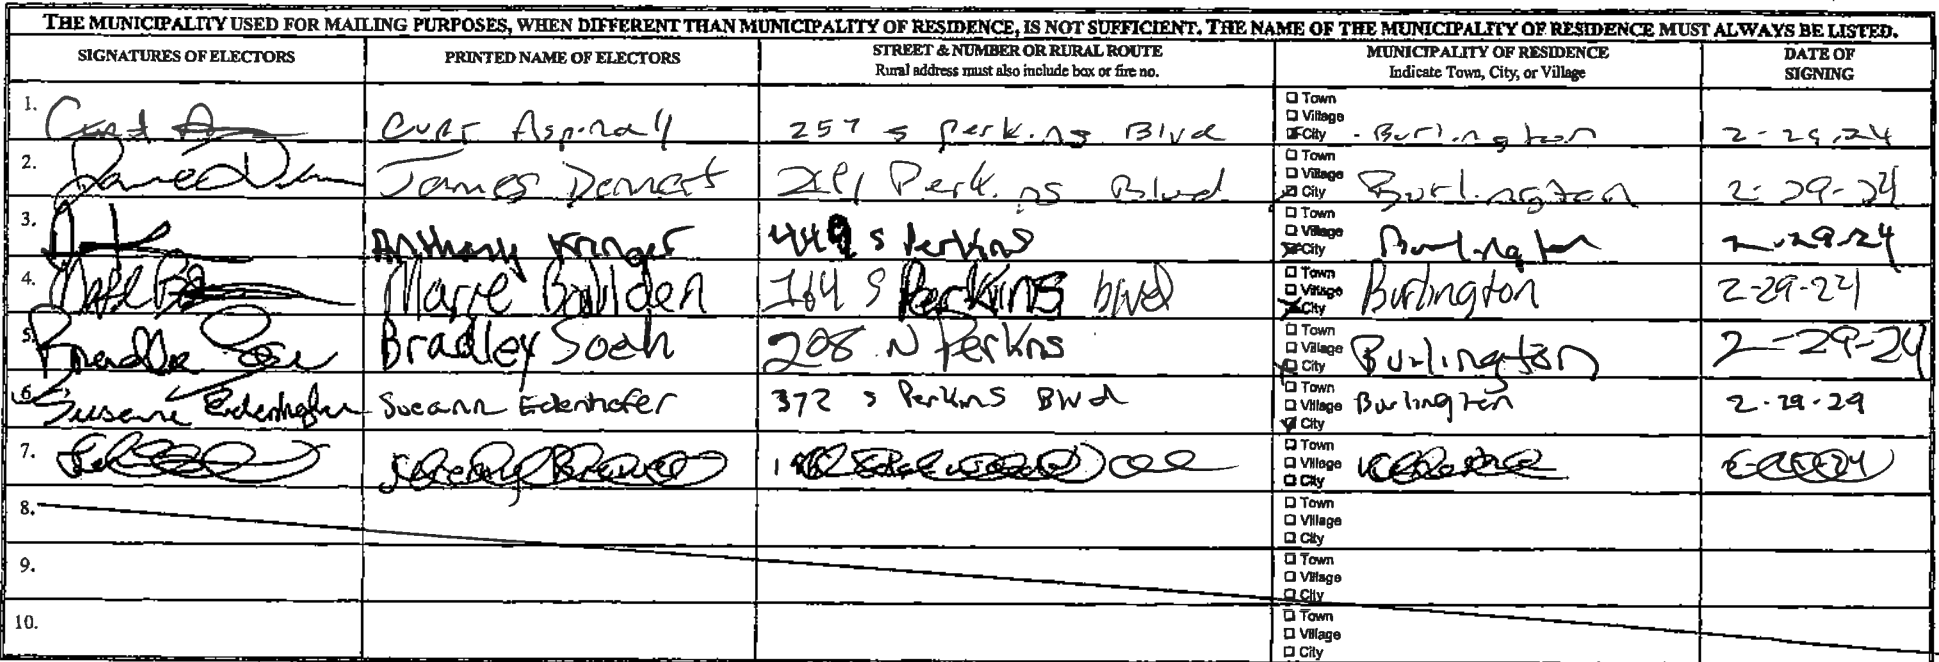 THE MUNICIPALITY USED FOR MAILING PURPOSES, WHEN DIFFERENT THAN MUNICIPALITY OF RESIDENCE, IS NOT SUFFICIENT. THE NAME OF THE MUNICIPALITY OF RESIDENCE MUST ALWAYS BE LISTED.
SIGNATURES OF ELECTORS PRINTED NAME OF ELECTORS STREET & NUMBER OR RURAL ROUTE MUNICIPALITY OF RESIDENCE DATE OF
Rural address must also include box or fire no. Indicate Town, City, or Village SIGNING
1. Curt Aspinall 257 S Perkins Blvd Town Village City Burlington 2-29-24
2. James Perkins Blvd Town Village City Burlington 2-29-24
3. Anthony 449 S Perkins Town Village City Burlington 2-29-24
4. Boulden 164 S Perkins blvd Town Village City Burlington 2-29-24
5. Bradley 208 N Perkins Town Village City Burlington 2-29-24
6. Sueann Edenhofer 372 S Perkins Blvd Town Village City Burlington
7. Town Village City
8. Town Village City
9. Town Village City
10. Town Village City